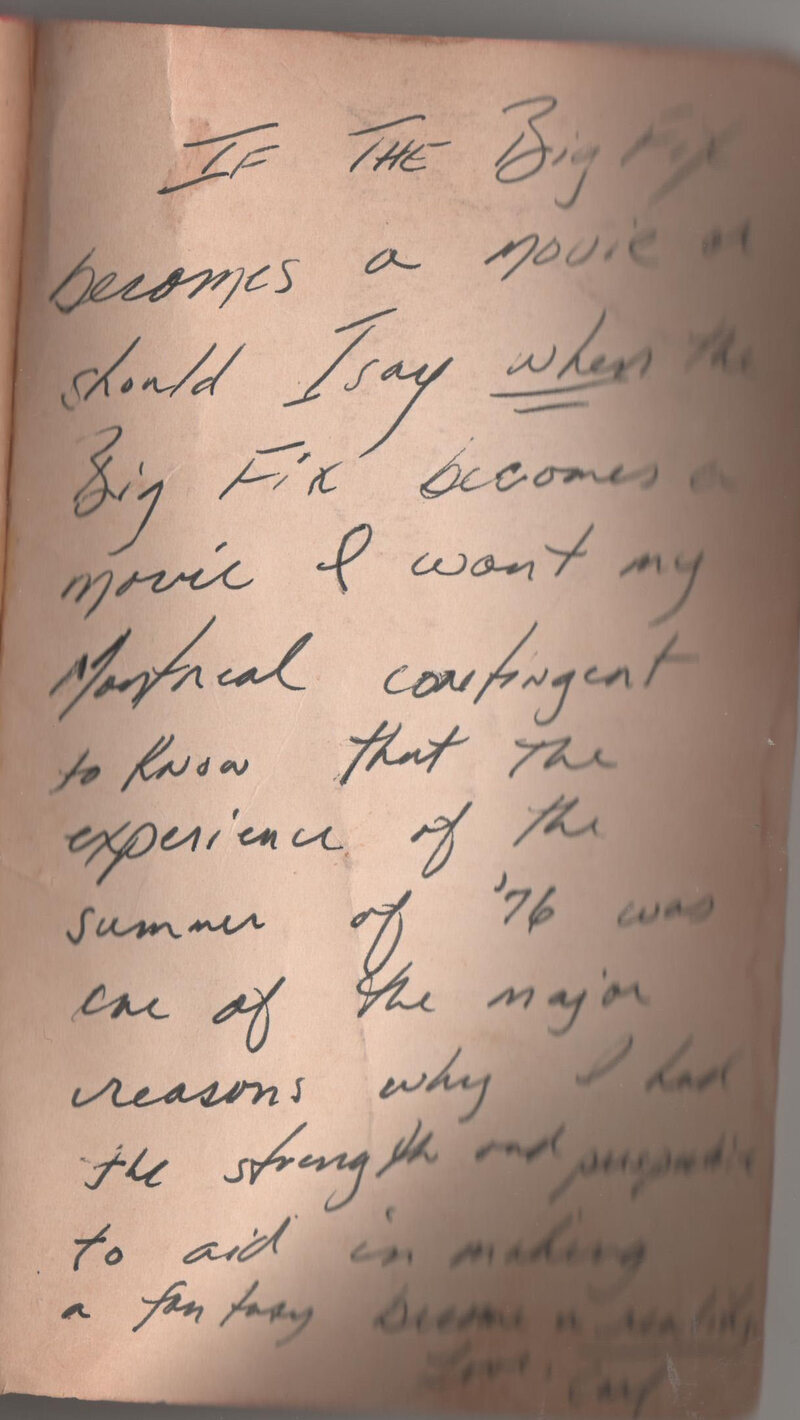 IF THE Big Fix
becomes a movie or
should I say when the
Big Fix becomes a
movie I want my
Montreal contingent
to know that the
experience of the
summer of '76 was
one of the major
reasons why I had
the strength and perspective
to aid in making
a fantasy become a reality.
Love,